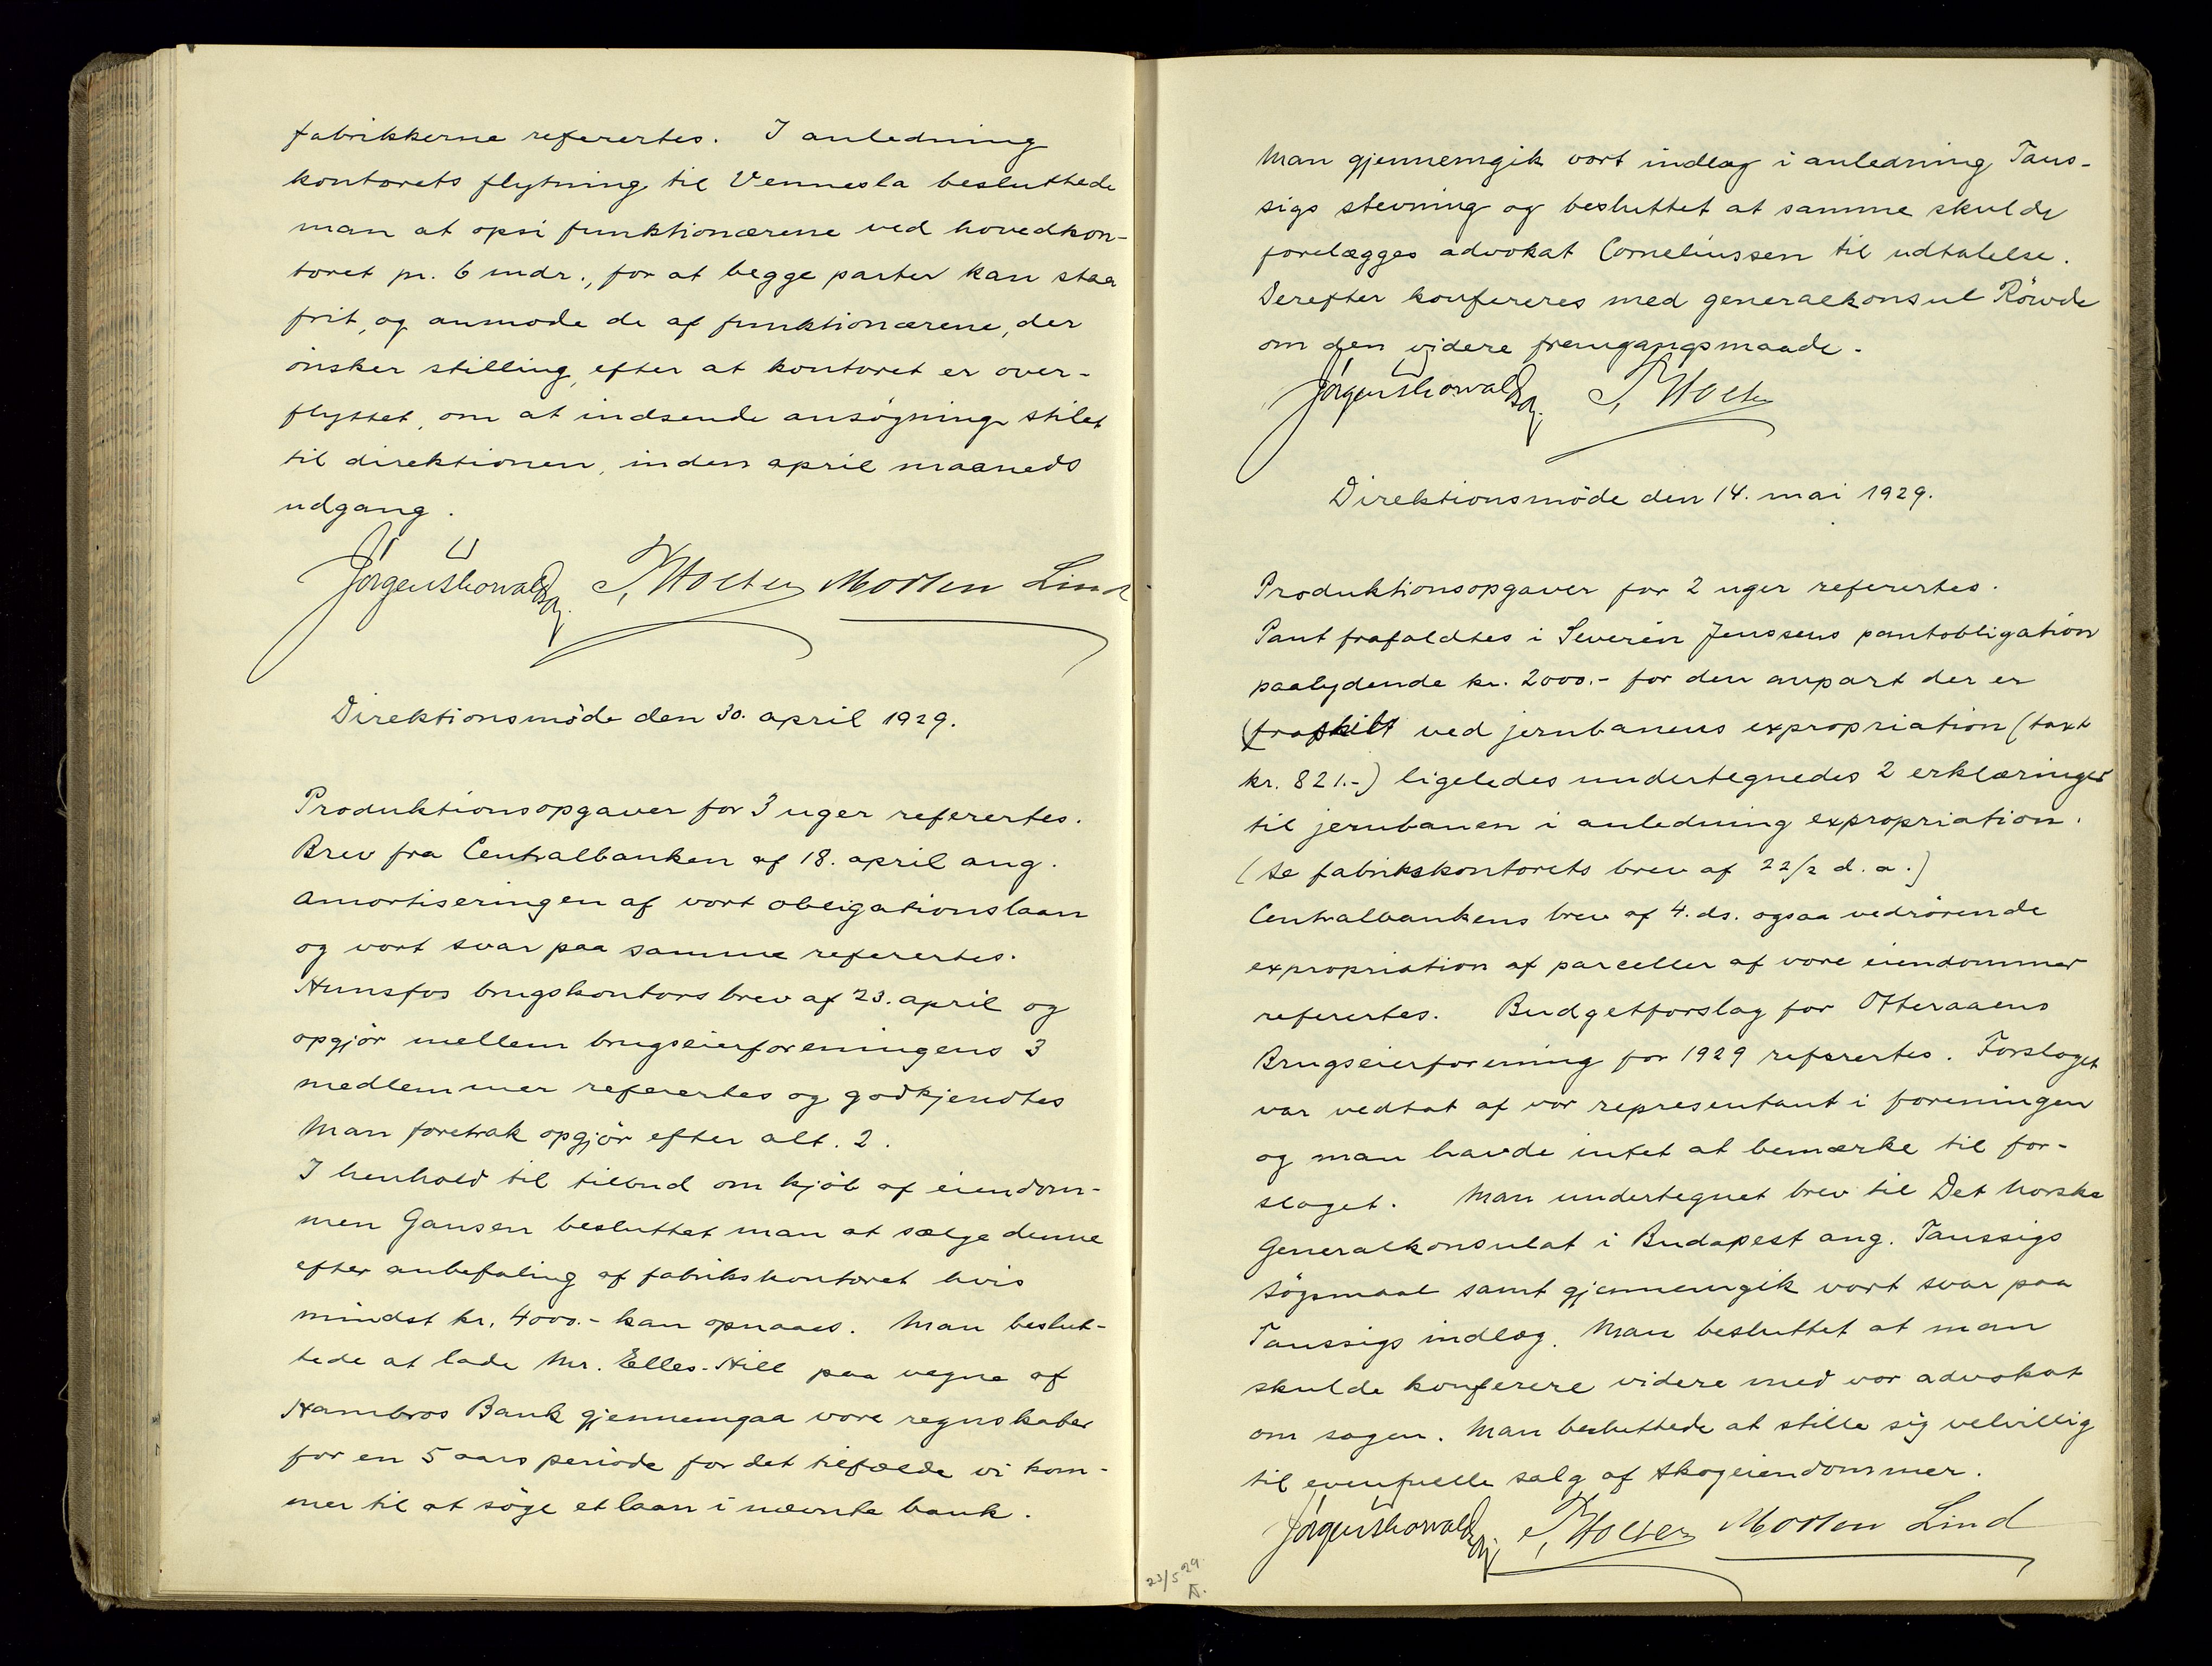 fabrikkerne refertes. I anledning
kontorets flytning til Vennesla besluttede
man at opsi funktionærene ved hovedkon-
toret pr. 6 mdr., for at begge parter kan staa
frit, og anmode de af funktionærene, der
ønsker stilling, efter at kontoret er over-
flyttet, om at indsende ansøgning, stilet
til direktionen, inden april maaneds
udgang.
Morten Lind
Direktionsmøde den 30. april 1929.
Produktionsopgaver for 3 uger refertes.
Brev fra Centralbanken af 18. april ang.
amortiseringen af vort obligationslaan
og vort svar paa samme refertes.
Hunsfos brugskontors brev af 23. april og
opgjør mellem brugseierforeningens 3
medlemmer refertes og godkjendtes
Man foretrak opgjør efter alt. 2.
I henhold til tilbud om kjøb af eiendom-
men Gansen besluttet man at sælge denne
efter anbefaling af fabrikskontoret hvis
mindst kr. 4000.- kan opnaaes. Man beslut-
tede at lade Mr. Elles-Hill paa vegne af
Hambros Bank gjennemgaa vore regnskaber
for en 5 aars periode for det tilfælde vi kom-
mer til at søge et laan i nævnte bank.
Man gjennemgik vort indlæg i anledning Taus-
sigs stevning og besluttet at samme skulde
forelægges advokat Corneliussen til udtalelse.
Derefter konfereres med generalkonsul Röwde
om den videre fremgangsmaade.
Direktionsmøde den 14. mai 1929.
Produktionsopgaver for 2 uger refertes.
Pant frafaldtes i Severin Jenssens pantobligation
paalydende kr. 2000.- for den anpart der er
fraskilt ved jernbanens expropriation (taxt
kr. 821.-) ligeledes undertegnedes 2 erklæringer
til jernbanen i anledning expropriation.
(se fabrikskontorets brev af 22/2 d.a.)
Centralbankens brev af 4. ds. ogsaa vedrørende
expropriation af parceller af vore eiendommer
refertes. Budgetforslag for Otteraaens
Brugseierforening for 1929 refertes. Forslaget
var vedtat af vor representant i foreningen
og man havde intet at bemærke til for-
slaget. Man undertegnet brev til Det norske
Generalkonsulat i Budapest ang. Taussigs
søgsmaal samt gjennemgik vort svar paa
Taussigs indlæg. Man besluttet at man
skulde konferere videre med vor advokat
om sagen. Man besluttede at stille sig velvillig
til eventuelle salg af skogeiendommer.
Morten Lind
23/5 29